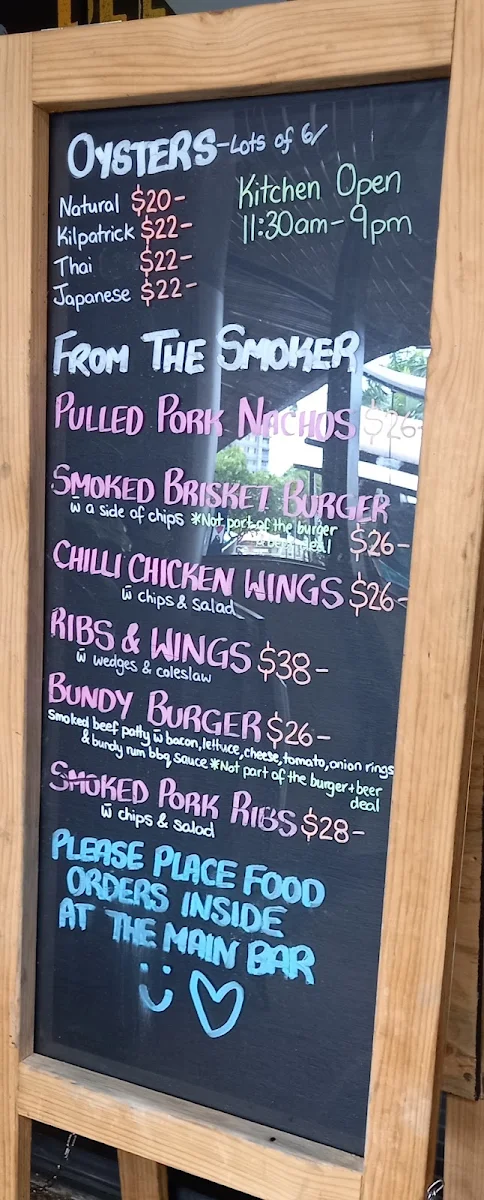 OYSTERS-Lots of 6/
Natural $20-
Kilpatrick $22-
Thai $22-
Japanese $22-
Kitchen Open
11:30am-9pm
FROM THE SMOKER
PULLED PORK NACHOS $26-
SMOKED BRISKET BURGER
w̄ a side of chips *Not part of the burger
deal $26-
CHILLI CHICKEN WINGS $26-
w̄ chips & salad
RIBS & WINGS $38-
w̄ wedges & coleslaw
BUNDY BURGER $26-
Smoked beef patty w̄ bacon, lettuce, cheese, tomato, onion rings
& bundy rum bbq sauce *Not part of the burger+beer
deal
SMOKED PORK RIBS $28-
w̄ chips & salad
PLEASE PLACE FOOD
ORDERS INSIDE
AT THE MAIN BAR